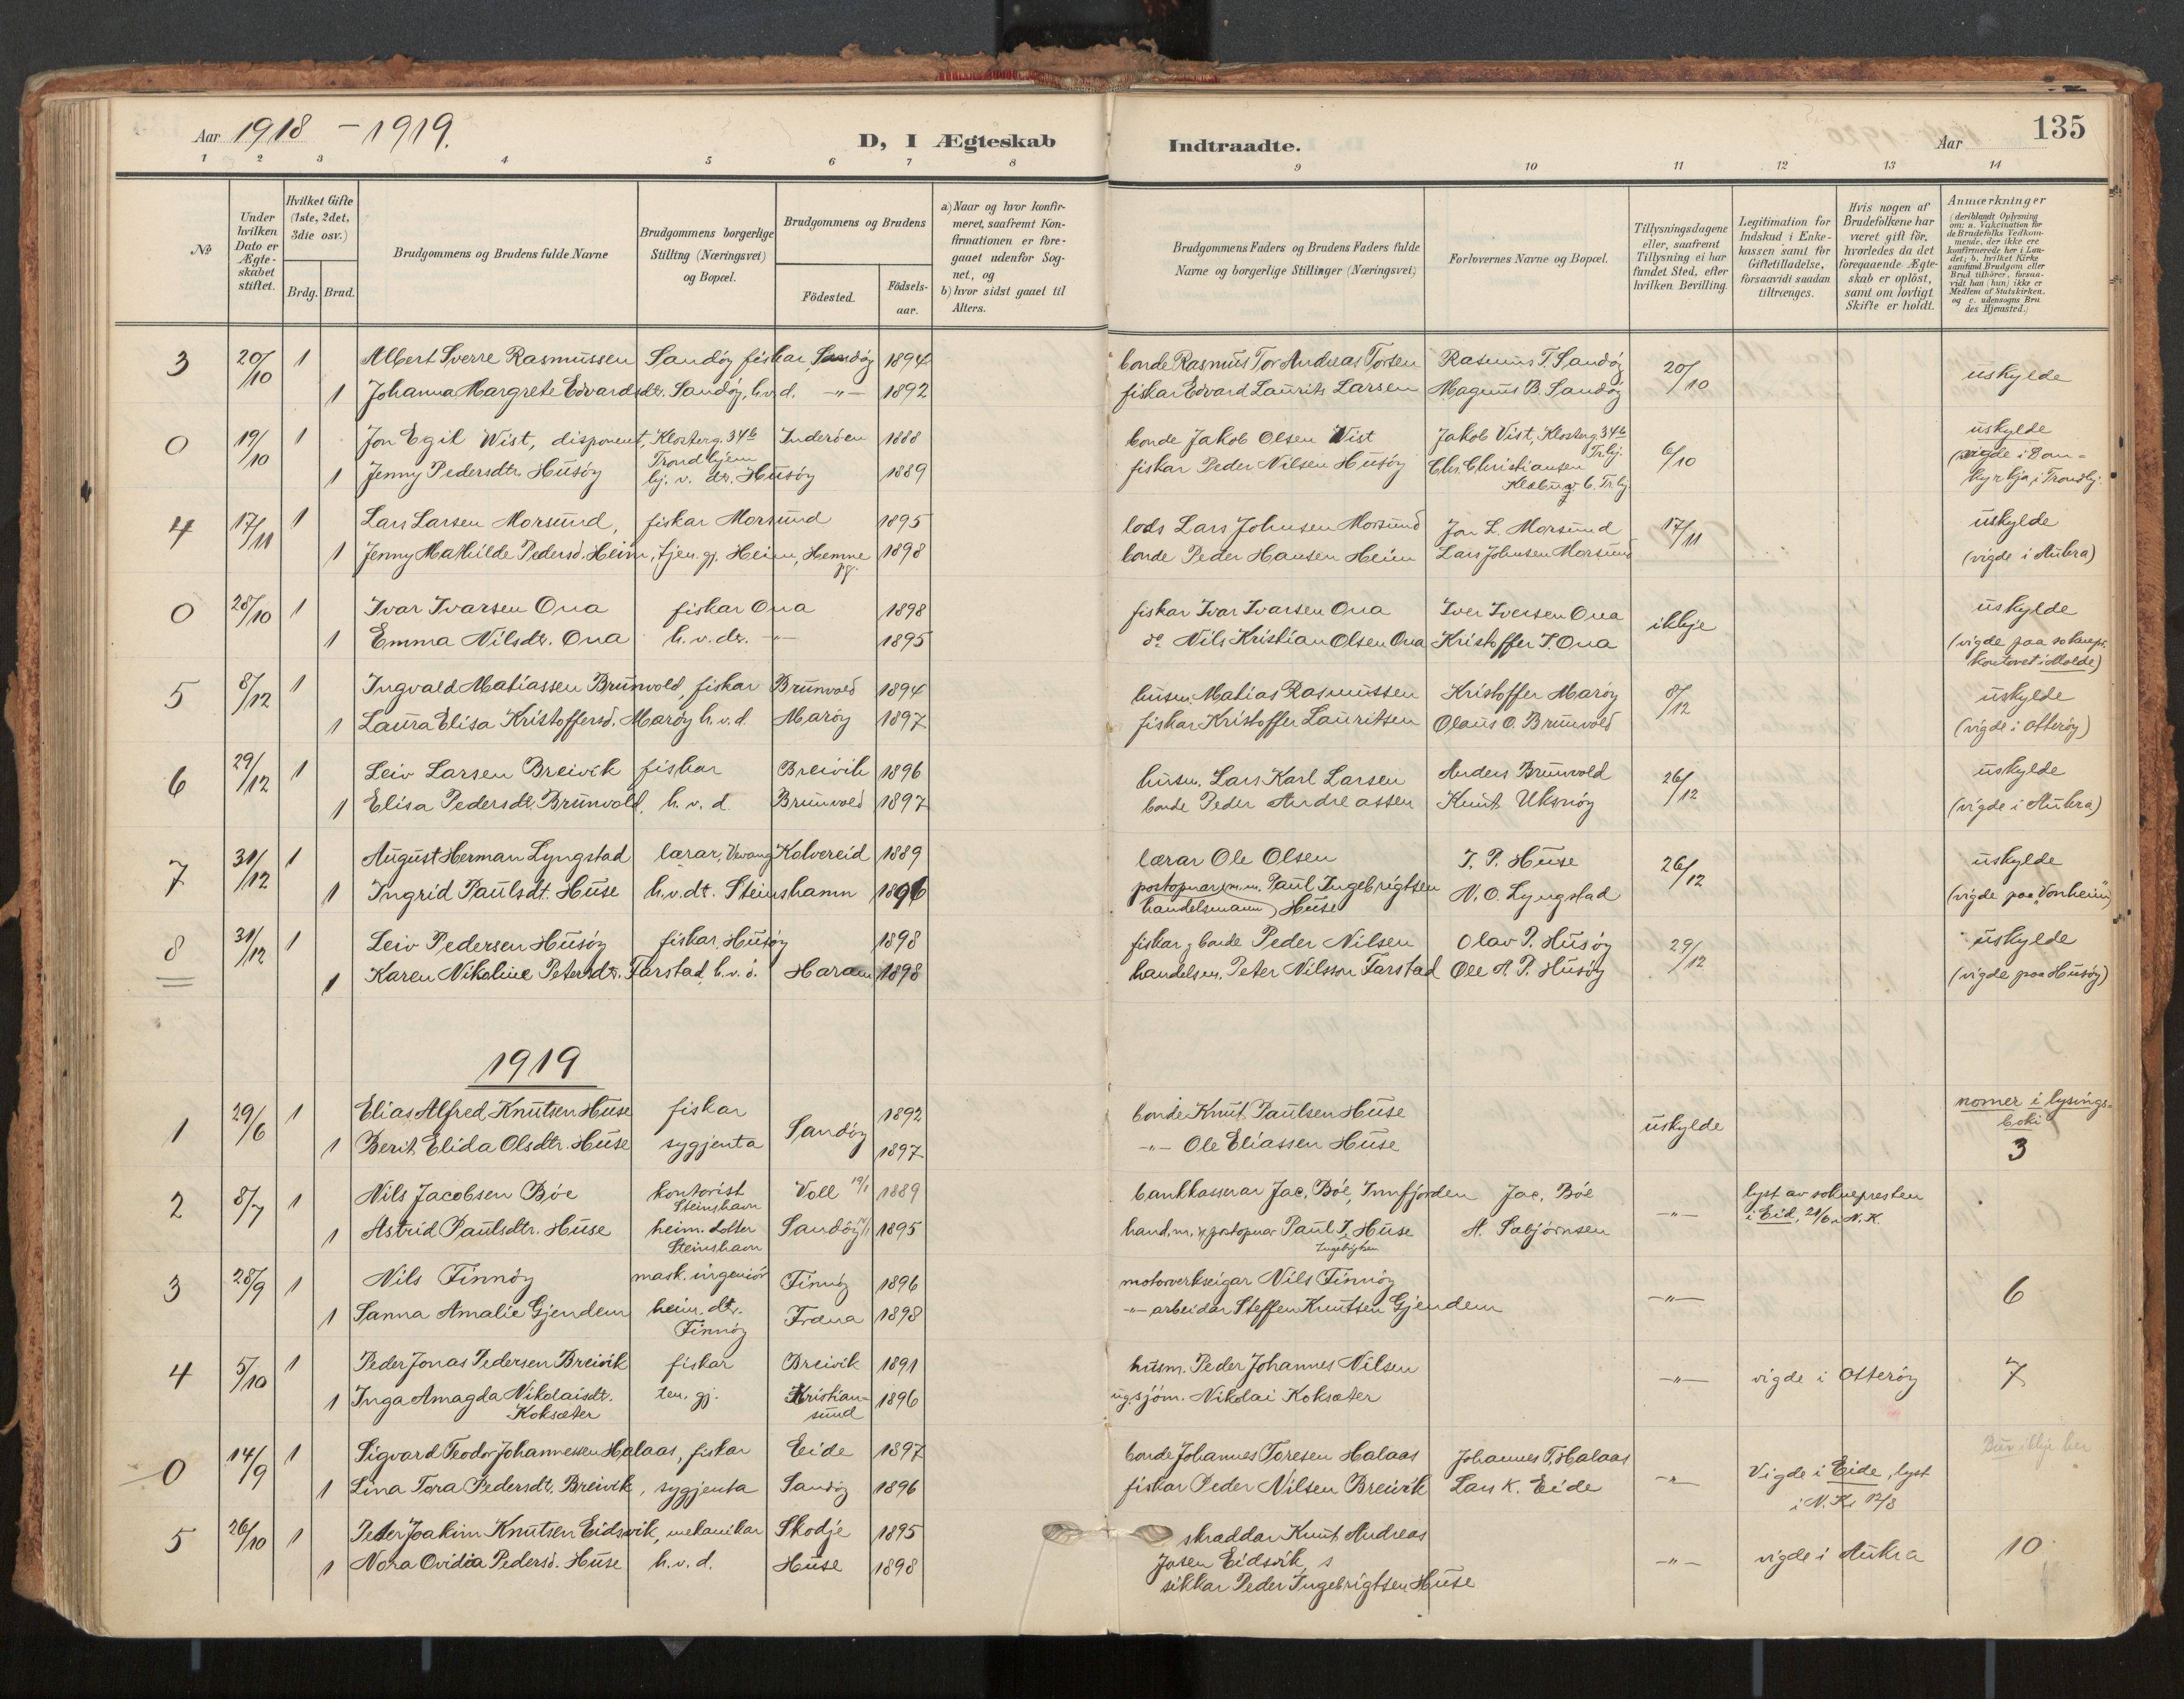 Aar 1918 - 1919.
D, I Ægteskab Indtraadte.
Aar
135
1 2 3 4 5 6 7 8 9 10 11 12 13 14
No
Under hvilken Dato er Ægte-skabet stiftet.
Hvilket Gifte (1ste, 2det, 3die osv.)
Brdg. Brud.
Brudgommens og Brudens fulde Navne
Brudgommens borgerlige Stilling (Næringsvei) og Bopæl.
Brudgommens og Brudens
Födested.
Födsels-aar.
a) Naar og hvor konfir-meret, saafremt Kon-firmationen er fore-gaaet udenfor Sog-net, og
b) hvor sidst gaaet til Alters.
Brudgommens Faders og Brudens Faders fulde Navne og borgerlige Stillinger (Næringsvei)
Forlovernes Navne og Bopæl.
Tillysningsdagene eller, saafremt Tillysning ei har fundet Sted, efter hvilken Bevilling.
Legitimation for Indskud i Enke-kassen samt for Giftetilladelse, forsaavidt saadan tiltrænges.
Hvis nogen af Brudefolkene har været gift för, hvorledes da det foregaaende Ægte-skab er oplöst, samt om lovligt Skifte er holdt.
Anmærkninger
(deriblandt Oplysning om: a. Vakcination for de Brudefolks Vedkom-mende, der ikke ere konfirmerede her i Lan-det; b. hvilket Kirke samfund Brudgom eller Brud tilhörer, forsaa-vidt han (hun) ikke er Medlem af Statskirken. og c. udensogns Bru des Hjemsted.)
3 20/10 1 Albert Sverre Rasmussen Sandöy fiskar, Sandöy 1894 bonde Rasmus Tor Andreas Torsen Rasmus T. Sandöy 20/10 uskylde
1 Johanna Margrete Edvardsdtr. Sandöy, h.v.d. -"- 1892 fiskar Edvard Laurits Larsen Magnus B. Sandöy
0 19/10 1 Jon Egil Wist, disponent, Klosterg. 34b Inderöen 1888 bonde Jakob Olsen Wist Jakob Vist, Klosterg. 34b Tr.hj. 6/10 uskylde
Trondhjem
1 Jenny Pedersdtr. Husöy hj. v. dr. Husöy 1889 fiskar Peder Nilsen Husöy Chr. Christiansen (vigde i Dom-kyrkja i Trondhj.
4 17/11 1 Lars Larsen Morsund, fiskar Morsund 1895 lods Lars Johnsen Morsund Jon L. Morsund 17/11 uskylde
1 Jenny Mathilde Pedersd. Heim, tjen. gj. Heim, Hemne pg. 1898 bonde Peder Hansen Heim Lars Johnsen Morsund (vigde i Aukra)
0 28/10 1 Ivar Ivarsen Ona fiskar Ona 1898 fiskar Ivar Ivarsen Ona Iver Iversen Ona ikkje uskylde
1 Emma Nilsdr. Ona h.v.dr. -"- 1895 do Nils Kristian Olsen Ona Kristoffer I. Ona (vigde paa soknepr. kontoret i Molde)
5 8/12 1 Ingvald Matiassen Brunvold, fiskar Brunvold 1894 husm. Matias Rasmussen Kristoffer Maröy 8/12 uskylde
1 Laura Elisa Kristoffersd. Maröy h.v.d. Maröy 1897 fiskar Kristoffer Lauritsen Olaus O. Brunvold (vigde i Otteröy)
6 29/12 1 Leiv Larsen Breivik fiskar Breivik 1896 husm. Lars Karl Larsen Anders Brunvold 26/12 uskylde
1 Elisa Pedersdt. Brunvold, h.v.d. Brunvold 1897 bonde Peder Andreassen Knut Uksnöy (vigde i Aukra)
7 31/12 1 August Herman Lyngstad lærar, Vevang Kolvereid 1889 lærar Ole Olsen I. P. Huse 26/12 uskylde
1 Ingrid Paulsdt. Huse h.v.dt. Steinshamn 1896 postopnar (m.m. Paul Ingebrigtsen N. O. Lyngstad (vigde paa "Vonheim")
handelsmann) Huse
8 31/12 1 Leiv Pedersen Husöy fiskar, Husöy 1898 fiskar, bonde Peder Nilsen Olav P. Husöy 29/12 uskylde
1 Karen Nikoline Petersdtr. Farstad, h.v.d. Haram 1898 handelsm. Peter Nilsson Farstad Ole A. P. Husöy (vigde paa Husöy)
1919
nomer i lysings-boki
1 29/6 1 Elias Alfred Knutsen Huse fiskar Sandöy 1892 bonde Knut Paulsen Huse uskylde
1 Berit Elida Olsdtr. Huse sygjenta 1897 -"- Ole Eliassen Huse 3
2 8/7 1 Nils Jacobsen Böe kontorist Steinshavn Voll 19/1 1889 bankkasserar Jac. Böe, Innfjorden Jac. Böe -"- lyst av soknepresten i Eid, 21/6 i N.K.
1 Astrid Paulsdtr. Huse heim. dotter Steinshavn Sandöy 1895 hand.m. & postopnar Paul I. Huse A. Sæbjörnsen
Ingebrigtsen
3 28/9 1 Nils Finnöy mask. ingeniör Finnöy 1896 motorverkseigar Nils Finnöy -"- 6
1 Sanna Amalie Gjendem heim. dtr. Finnöy Fræna 1898 -"- arbeidar Steffen Knutsen Gjendem
4 5/10 1 Peder Jonas Pedersen Breivik fiskar Breivik 1891 husm. Peder Johannes Nilsen -"- vigde i Otteröy 7
1 Inga Amagda Nikolaisdt. Koksæter ten. gj. Kristian-sund 1896 ug. sjöm. Nikolai Koksæter
0 14/9 1 Sigvard Teodor Johannessen Halaas, fiskar Eide 1897 bonde Johannes Toresen Halaas Johannes T. Halaas -"- Vigde i Eide, lyst i N.K. 17/8 Bur ikkje her
1 Lina Tora Pedersdt. Breivik, sygjenta Sandöy 1896 fiskar Peder Nilsen Breivik Lars K. Eide
5 26/10 1 Peder Joakim Knutsen Eidsvik, mekanikar Skodje 1895 skraddar Knut Andreas Josen Eidsvik, -"- vigde i Aukra 10
1 Nora Ovidia Pedersd. Huse h.v.d. Huse 1898 Peder Ingebrigtsen Huse